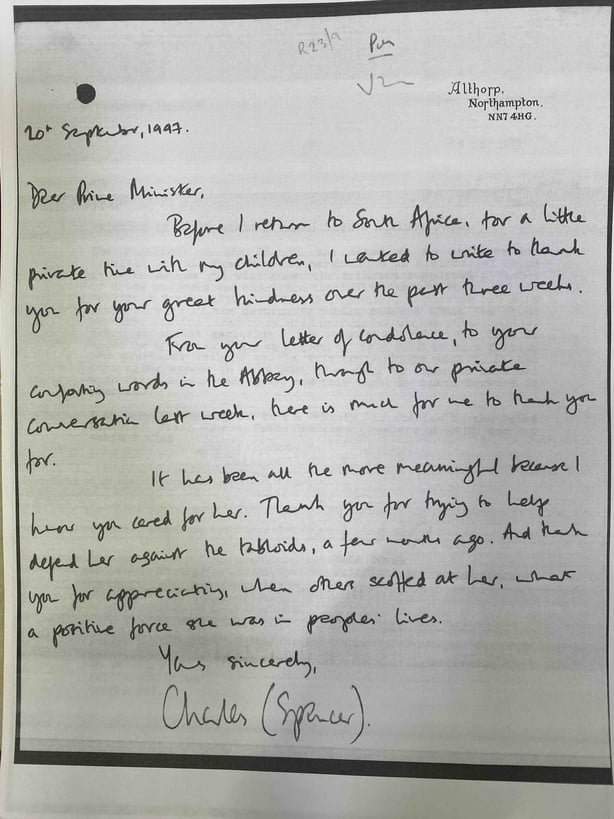 R23/9
Althorp,
Northampton,
NN7 4HG.
20th September, 1997.
Dear Prime Minister,
Before I return to South Africa, for a little
private time with my children, I wanted to write to thank
you for your great kindness over the past three weeks.
From your letter of condolence, to your
comforting words in the Abbey, through to our private
conversation last week, there is much for me to thank you
for.
It has been all the more meaningful because I
know you cared for her. Thank you for trying to help
defend her against the tabloids, a few months ago. And thank
you for appreciating, when others scoffed at her, what
a positive force she was in peoples' lives.
Yours sincerely,
Charles (Spencer).